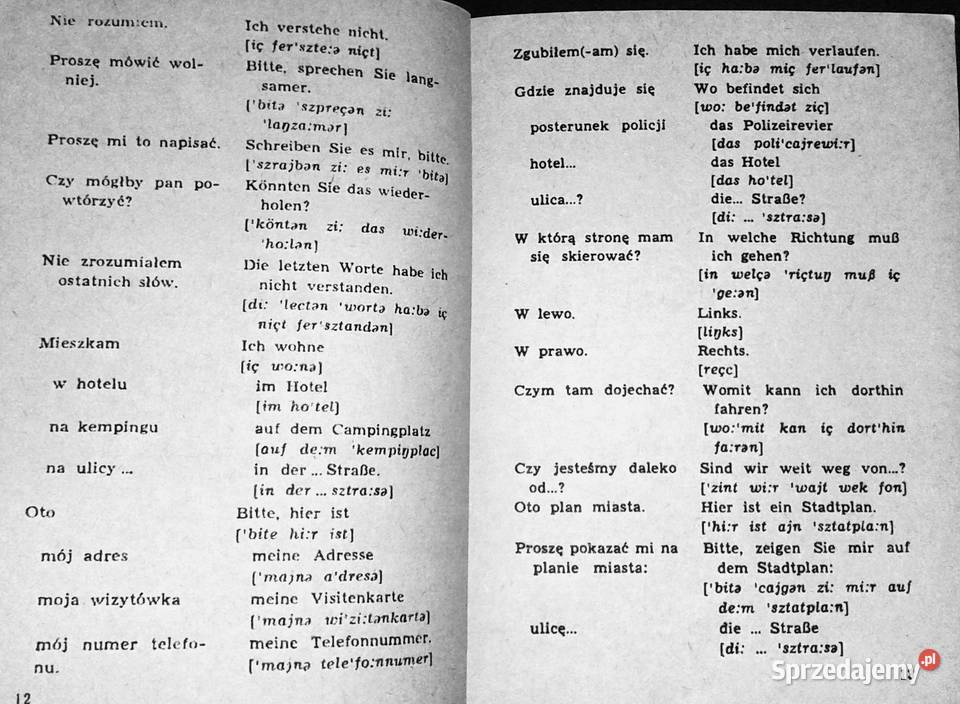 Nie rozumiem. Ich verstehe nicht.
[iç fer'szte:ə niçt]
Proszę mówić wol- Bitte, sprechen Sie lang-
niej. samer.
['bitə 'szpreçən zi:
'laŋza:mər]
Proszę mi to napisać. Schreiben Sie es mir, bitte.
['szrajbən zi: es mi:r 'bitə]
Czy mógłby pan po- Könnten Sie das wieder-
wtórzyć? holen?
['köntən zi: das wi:der-
'ho:lən]
Nie zrozumiałem Die letzten Worte habe ich
ostatnich słów. nicht verstanden.
[di: 'lectən 'wortə ha:bə iç
niçt fer'sztandən]
Mieszkam Ich wohne
[iç wo:nə]
w hotelu im Hotel
[im ho'tel]
na kempingu auf dem Campingplatz
[auf de:m 'kempiŋplac]
na ulicy ... in der ... Straße.
[in der ... sztra:sə]
Oto Bitte, hier ist
['bite hi:r ist]
mój adres meine Adresse
['majnə a'dresə]
moja wizytówka meine Visitenkarte
['majnə wi'zi:tənkartə]
mój numer telefo- meine Telefonnummer.
nu. ['majnə tele'fo:nnumer]
12
Zgubiłem(-am) się. Ich habe mich verlaufen.
[iç ha:bə miç fer'laufən]
Gdzie znajduje się Wo befindet sich
[wo: be'findət ziç]
posterunek policji das Polizeirevier
[das poli'cajrewi:r]
hotel... das Hotel
[das ho'tel]
ulica...? die... Straße?
[di: ... 'sztra:sə]
W którą stronę mam In welche Richtung muß
się skierować? ich gehen?
[in welçə 'riçtuŋ muß iç
'ge:ən]
W lewo. Links.
[liŋks]
W prawo. Rechts.
[reçc]
Czym tam dojechać? Womit kann ich dorthin
fahren?
[wo:'mit kan iç dort'hin
fa:rən]
Czy jesteśmy daleko Sind wir weit weg von...?
od...? ['zint wi:r 'wajt wek fon]
Oto plan miasta. Hier ist ein Stadtplan.
['hi:r ist ajn 'sztatpla:n]
Proszę pokazać mi na Bitte, zeigen Sie mir auf
planie miasta: dem Stadtplan:
['bitə 'cajgən zi: mi:r auf
de:m 'sztatpla:n]
ulicę... die ... Straße
[di: ... 'sztra:sə]
Sprzedajemy.pl